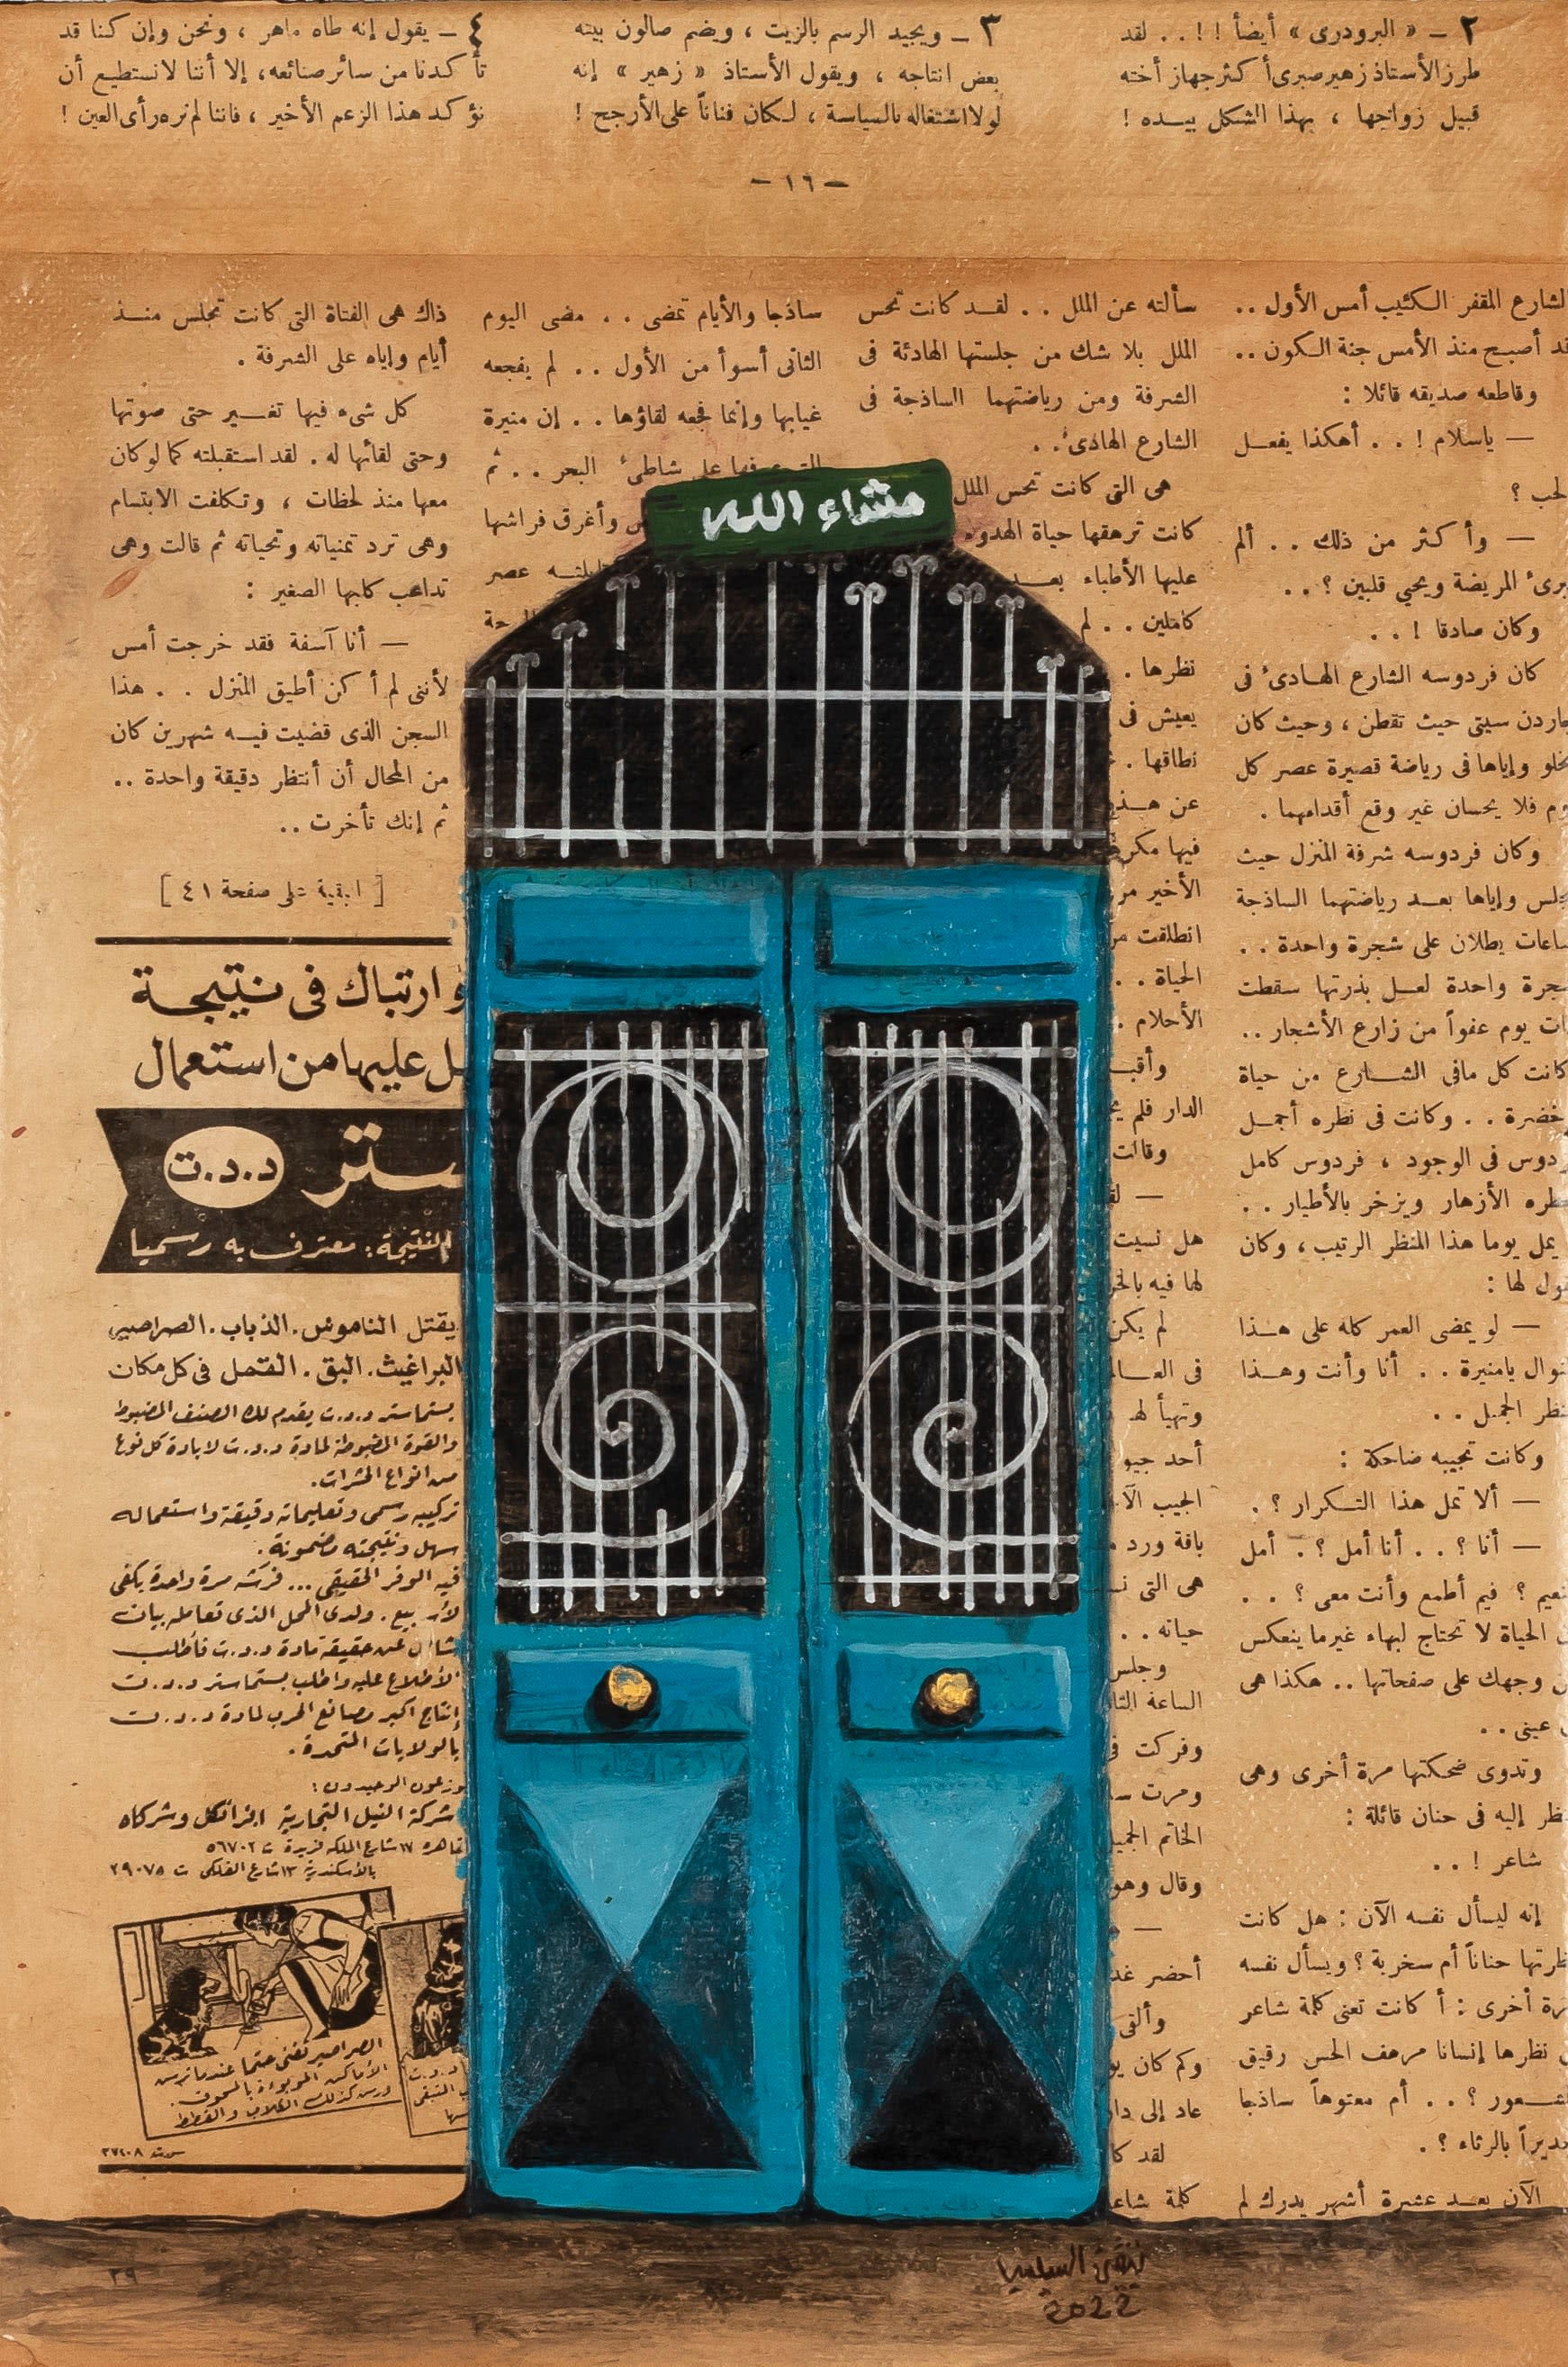 ٢ — « البرودرى » أيضأ ! ! . . لقد
طرز الأستاذ زهير صبرى أكثر جهاز أخته
قبيل زواجها ، بهذا الشكل بيده !
٣ — ويجيد الرسم بالزيت ، ويضم صالون بيته
بعض انتاجه ، ويقول الأستاذ « زهير » إنه
لولا اشتغاله بالسياسة ، لكان فناناً على الأرجح !
٤ — يقول إنه طاه ماهر ، ونحن وإن كنا قد
تأكدنا من سائر صنائعه، إلا أننا لا نستطيع أن
نؤكد هذا الزعم الأخير ، فاننا لم نره رأى العين !
— ١٦ —
الشارع المقفر الكئيب أمس الأول ..
قد أصبح منذ الأمس جنة الكون ..
وقاطعه صديقه قائلا :
— ياسلام ! . . أهكذا يفعل
لحب ؟
— وأكثر من ذلك . . ألم
يبرئ المريضة ويحيي قلبين ؟ . .
وكان صادقا ! . .
كان فردوسه الشارع الهادئ فى
جاردن سيتى حيث تقطن ، وحيث كان
يخلو وإياها فى رياضة قصيرة عصر كل
يوم فلا يحسان غير وقع أقدامهما .
وكان فردوسه شرفة المنزل حيث
يجلس وإياها بعد رياضتهما الساذجة
ساعات يطلان على شجرة واحدة . .
شجرة واحدة لعل بذرتها سقطت
ذات يوم عفواً من زارع الأشجار ..
كانت كل مافى الشارع من حياة
وخضرة . . وكانت فى نظره أجمل
فردوس فى الوجود ، فردوس كامل
الأزهار ويزخر بالأطيار . .
يمل يوما هذا المنظر الرتيب ، وكان
يقول لها :
— لو يمضى العمر كله على هذا
المنوال يامنيرة . . أنا وأنت وهذا
المنظر الجميل . .
وكانت تجيبه ضاحكة :
— ألا تمل هذا التكرار ؟ .
— أنا ؟ . . أنا أمل ؟ . أمل
النعيم ؟ فيم أطمع وأنت معى ؟ . .
الحياة لا تحتاج لبهاء غير ما ينعكس
وجهك على صفحاتها .. هكذا هى
عينى . .
وتدوى ضحكتها مرة أخرى وهى
تنظر إليه فى حنان قائلة :
شاعر ! . .
إنه ليسأل نفسه الآن : هل كانت
نظرتها حناناً أم سخرية ؟ ويسأل نفسه
مرة أخرى : أكانت تعنى كلمة شاعر
نظرها إنسانا مرهف الحس رقيق
الشعور ؟ . . أم معتوهاً ساذجا
جديراً بالرثاء ؟ .
الآن بعد عشرة أشهر يدرك لم
سألته عن الملل . . لقد كانت تحس
الملل بلا شك من جلستها الهادئة فى
الشرفة ومن رياضتهما الساذجة فى
الشارع الهادئ . .
هى التى كانت تحس الملل
كانت ترهقها حياة الهدوء
عليها الأطباء بعد
كاملين . . لم
نظرها .
يعيش فى
نطاقها .
عن هذ
فيها مكر
الأخير مر
انطلقت مر
الحياة . .
الأحلام .
وأقب
الدار فلم يج
وقالت
— لق
هل نسيت
لها فيه بالخر
لم يكن
فى العال
وتهيأ له
أحد جيو
الجيب الآ
باقة ورد
هى التى نس
حياته . .
وجلس
الساعة الثا
وفركت فى
ومرت س
الخاتم الجمي
وقال وهو
—
أحضر غد
وألقى
وكم كان يو
عاد إلى دار
لقد كا
كلمة شاعر
ساذجا والأيام تمضى . . مضى اليوم
الثانى أسوأ من الأول . . لم يفجعه
غيابها وإنما فجعه لقاؤها . . إن منيرة
على شاطئ البحر . . ثم
وأغرق فراشها
عصر
ذاك هى الفتاة التى كانت تجلس منذ
أيام وإياه على الشرفة .
كل شىء فيها تغير حتى صوتها
وحتى لقائها له . لقد استقبلته كما لو كان
معها منذ لحظات ، وتكلفت الابتسام
وهى ترد تمنياته وتحياته ثم قالت وهى
تداعب كلبها الصغير :
— أنا آسفة فقد خرجت أمس
لأننى لم أكن أطيق المنزل . . هذا
السجن الذى قضيت فيه شهرين كان
من المحال أن أنتظر دقيقة واحدة ..
ثم إنك تأخرت ..
[ البقية على صفحة ٤١ ]
مشاء الله
ارتباك فى نتيجة
عليها من استعمال
ستر د.د.ت
النتيجة : معترف به رسميا
يقتل الناموس . الذباب . الصراصير
البراغيث . البق . القمل فى كل مكان
بستماستر د.د.ت يقدم لك الصنف المضبوط
والقوة المضبوطة لمادة د.د.ت لابادة كل نوع
من انواع الحشرات .
تركيبه رسمى وتعليماته دقيقة واستعماله
سهل ونتيجته مضمونة .
فيه الوفر الحقيقى ... فرشه مرة واحدة يكفى
بيع . ولدى المحل الذى تعامله بيان
عن حقيقة مادة د.د.ت فأطلب
الأطلاع عليه واطلب بستماستر د.د.ت
إنتاج اكبر مصانع الحرب لمادة د.د.ت
بالولايات المتحدة .
موزعون الوحيدون :
شركة النيل التجارية افرانكل وشركاه
القاهرة ١٧ شارع الملكه فريدة ت ٥٦٧٠٢
بالأسكندرية ١٣ شارع الفلكى ت ٢٩٠٧٥
الصراصير تفنى حتما عندما ترس
الأماكن الموبوءة بالمسحوق .
ورس كذلك الكلاب والقطط
٢٩
2022